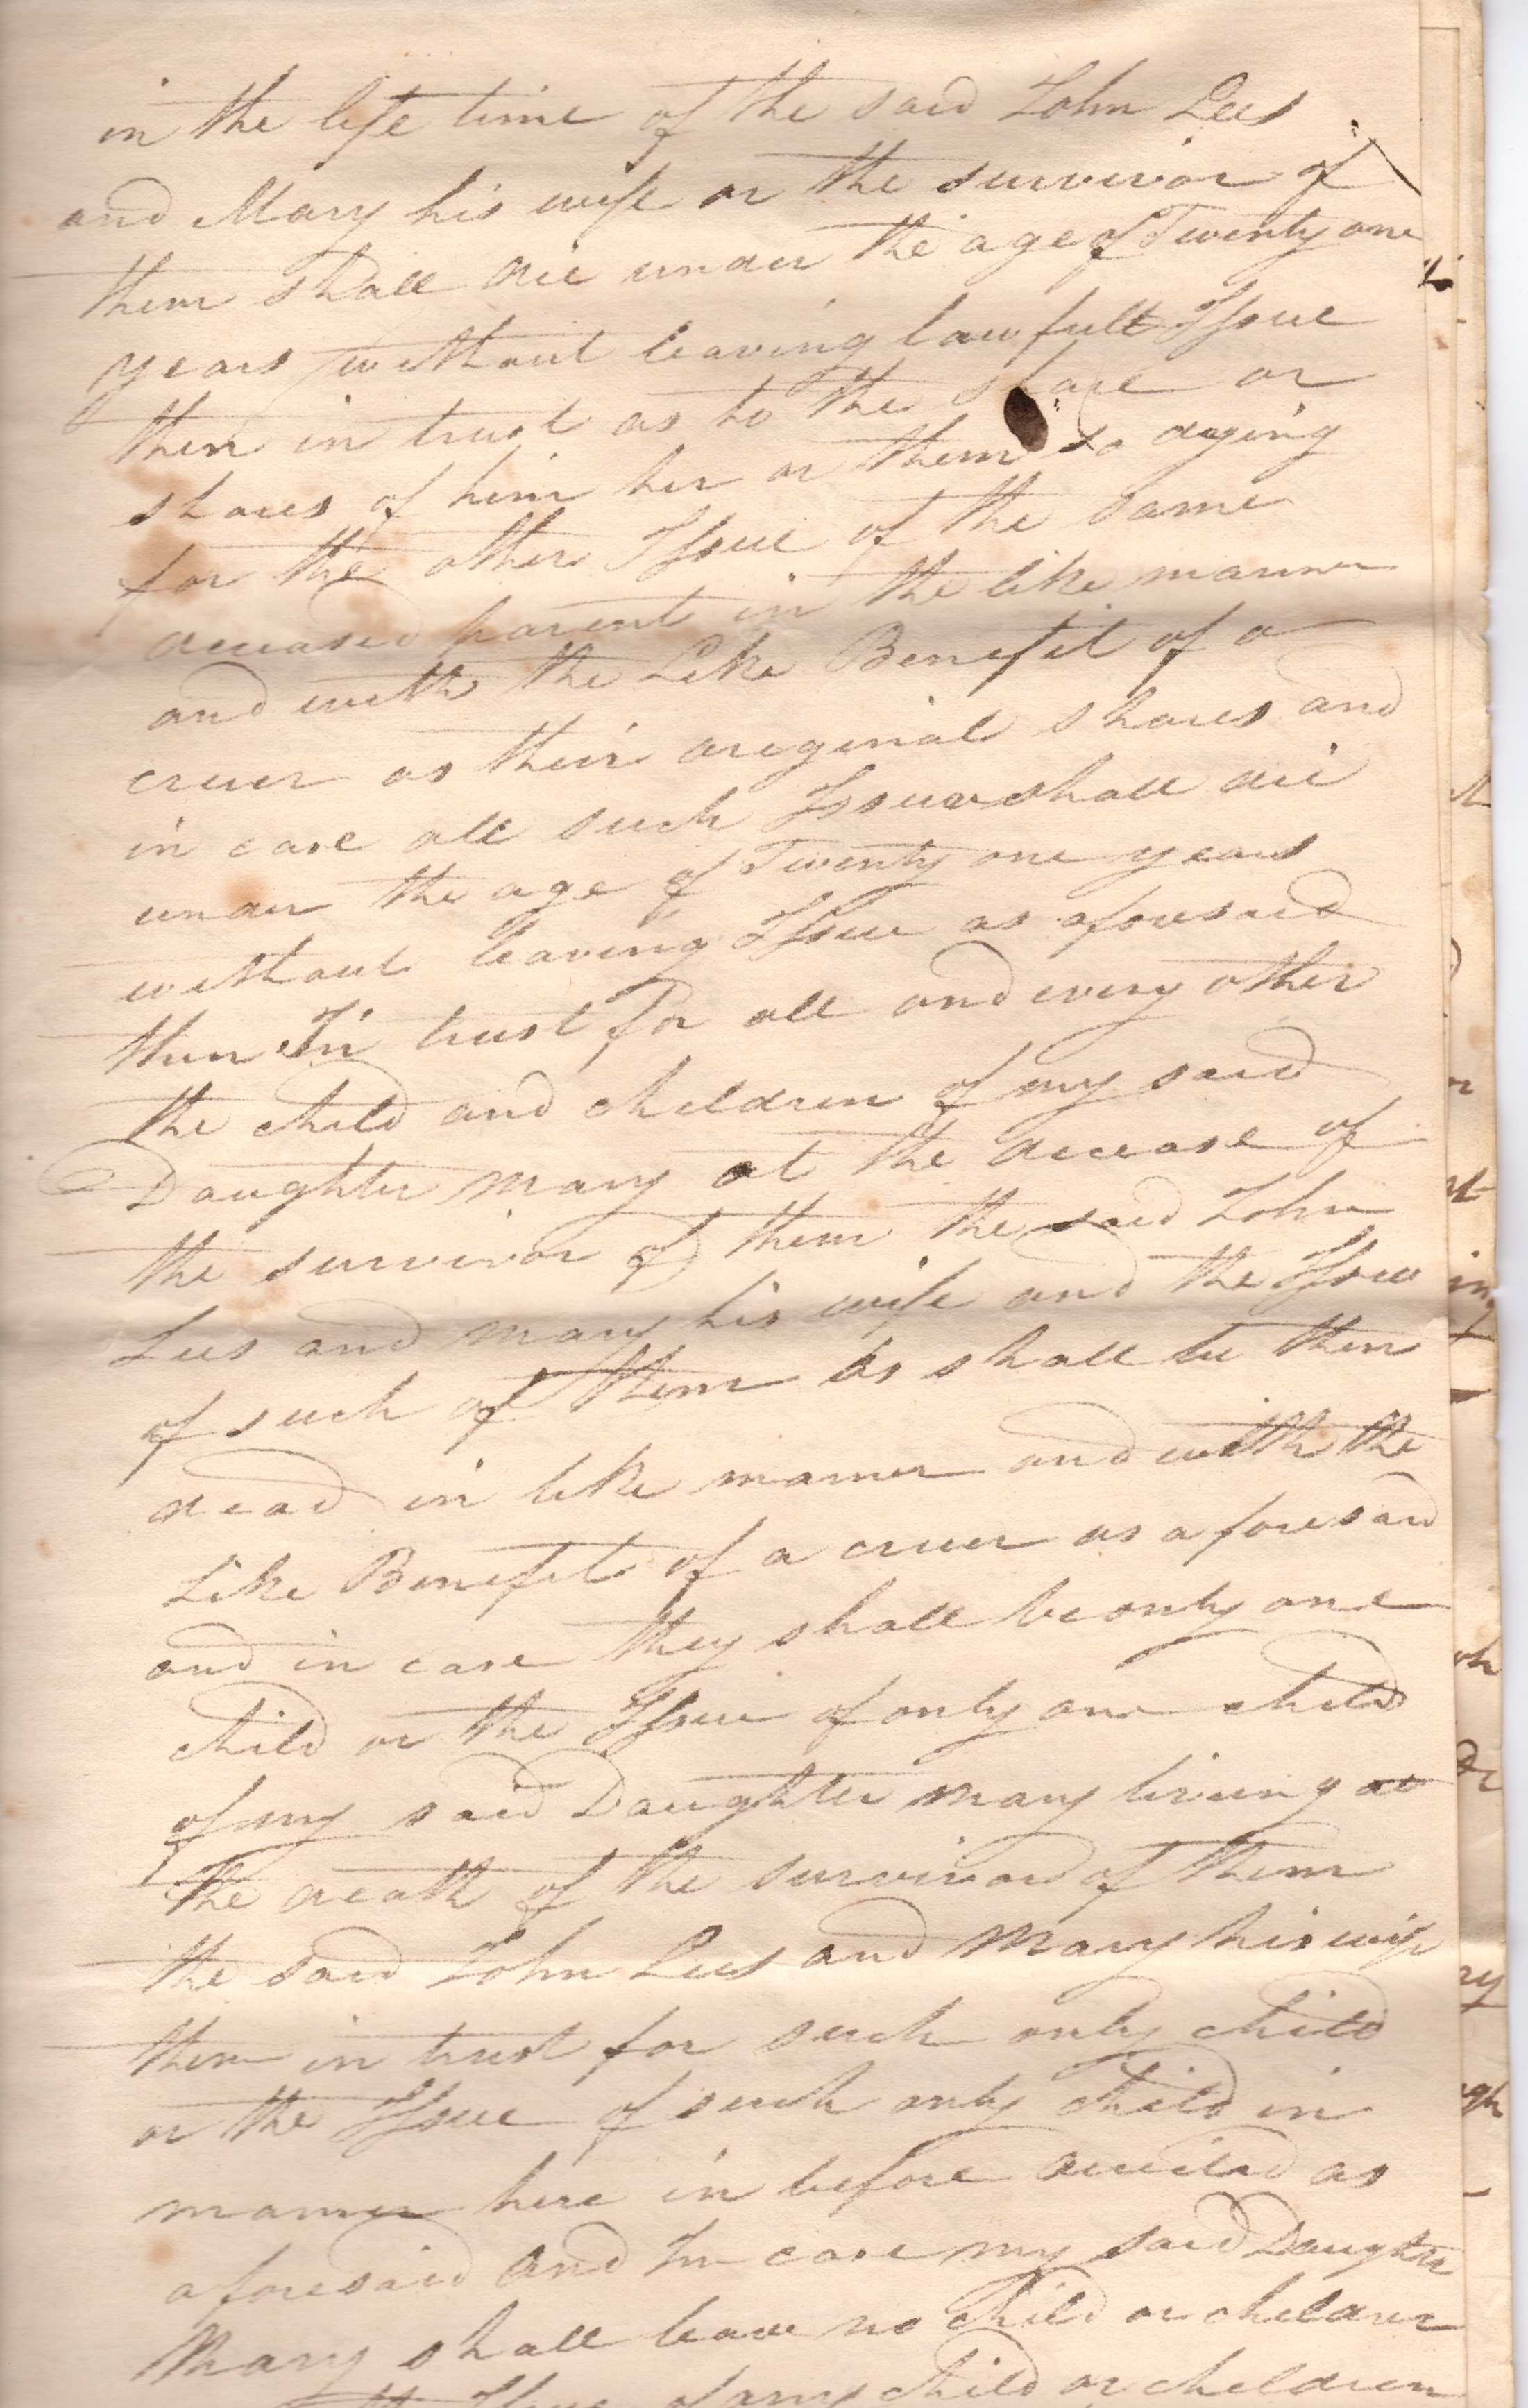 in the life time of the said John Lees
and Mary his wife or the survivor of
them shall die under the age of Twenty one
years without leaving lawfull Issue
then in trust as to the share or
shares of him her or them so dying
for the other Issue of the same
deceased parent in the like manner
and with the Like Benefit of a
cruer as their original shares and
in case all such Issue shall die
under the age of Twenty one years
without leaving Issue as aforesaid
then In trust for all and every other
the child and children of my said
Daughter Mary at the decease of
the survivor of them the said John
Lees and Mary his wife and the Issue
of such of them as shall be then
dead in like manner and with the
Like Benefit of a cruer as aforesaid
and in case they shall be only one
child or the Issue of only one child
of my said Daughter Mary living at
the death of the survivor of them
the said John Lees and Mary his wife
then in trust for such only child
or the Issue of such only child in
manner here in before as
aforesaid And In case my said Daughter
Mary shall leave no child or children
Issue of any child or children